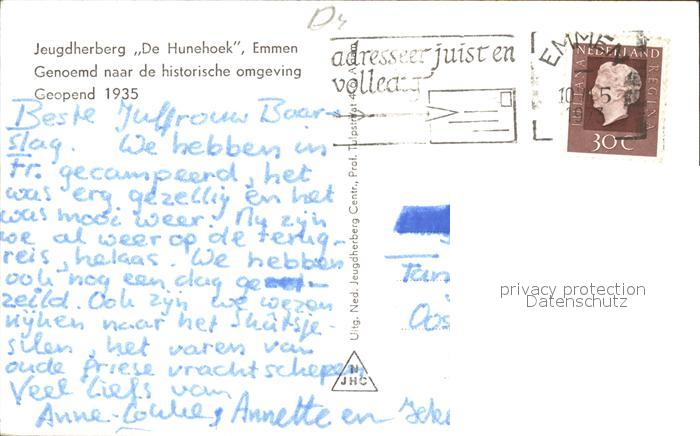 Jeugdherberg „De Hunehoek", Emmen
Genoemd naar de historische omgeving
Geopend 1935
adresseer juist en
volledig
EMMEN
NEDERLAND
JULIANA REGINA
30 C
Beste Juffrouw Baar-
slag. We hebben in
Fr. gecampeerd, het
was erg gezellig en het
was mooi weer. Nu zijn
we al weer op de terug-
reis, helaas. We hebben
ook nog een dag ge-
zeild. Ook zijn we wezen
kijken naar het skûtsje-
silen, het varen van
oude Friese vrachtschepen
Veel liefs van
Anne-Loukie, Annette en
Uitg. Ned. Jeugdherberg Centr., Prof. Tulpstraat 4, A'dam
NJHC
privacy protection
Datenschutz